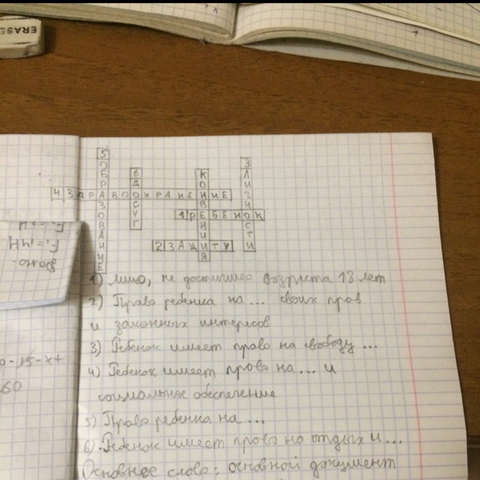 ERASE
5ОБРАЗОВАНИЕ
6ДОСУГ
КОНВЕНЦИЯ
3ЛИЧНОСТИ
4ЗДРАВООХРАНЕНИЕ
1РЕБЕНОК
2ЗАЩИТУ
1) лицо, не достигшее возраста 18 лет
2) Право ребенка на ... своих прав
и законных интересов
3) Ребенок имеет право на свободу ...
4) Ребенок имеет право на ... и
социальное обеспечение
5) Право ребенка на ...
6) Ребенок имеет право на отдых и ...
Основное слово: основной документ
Дано:
F₁=14H
60